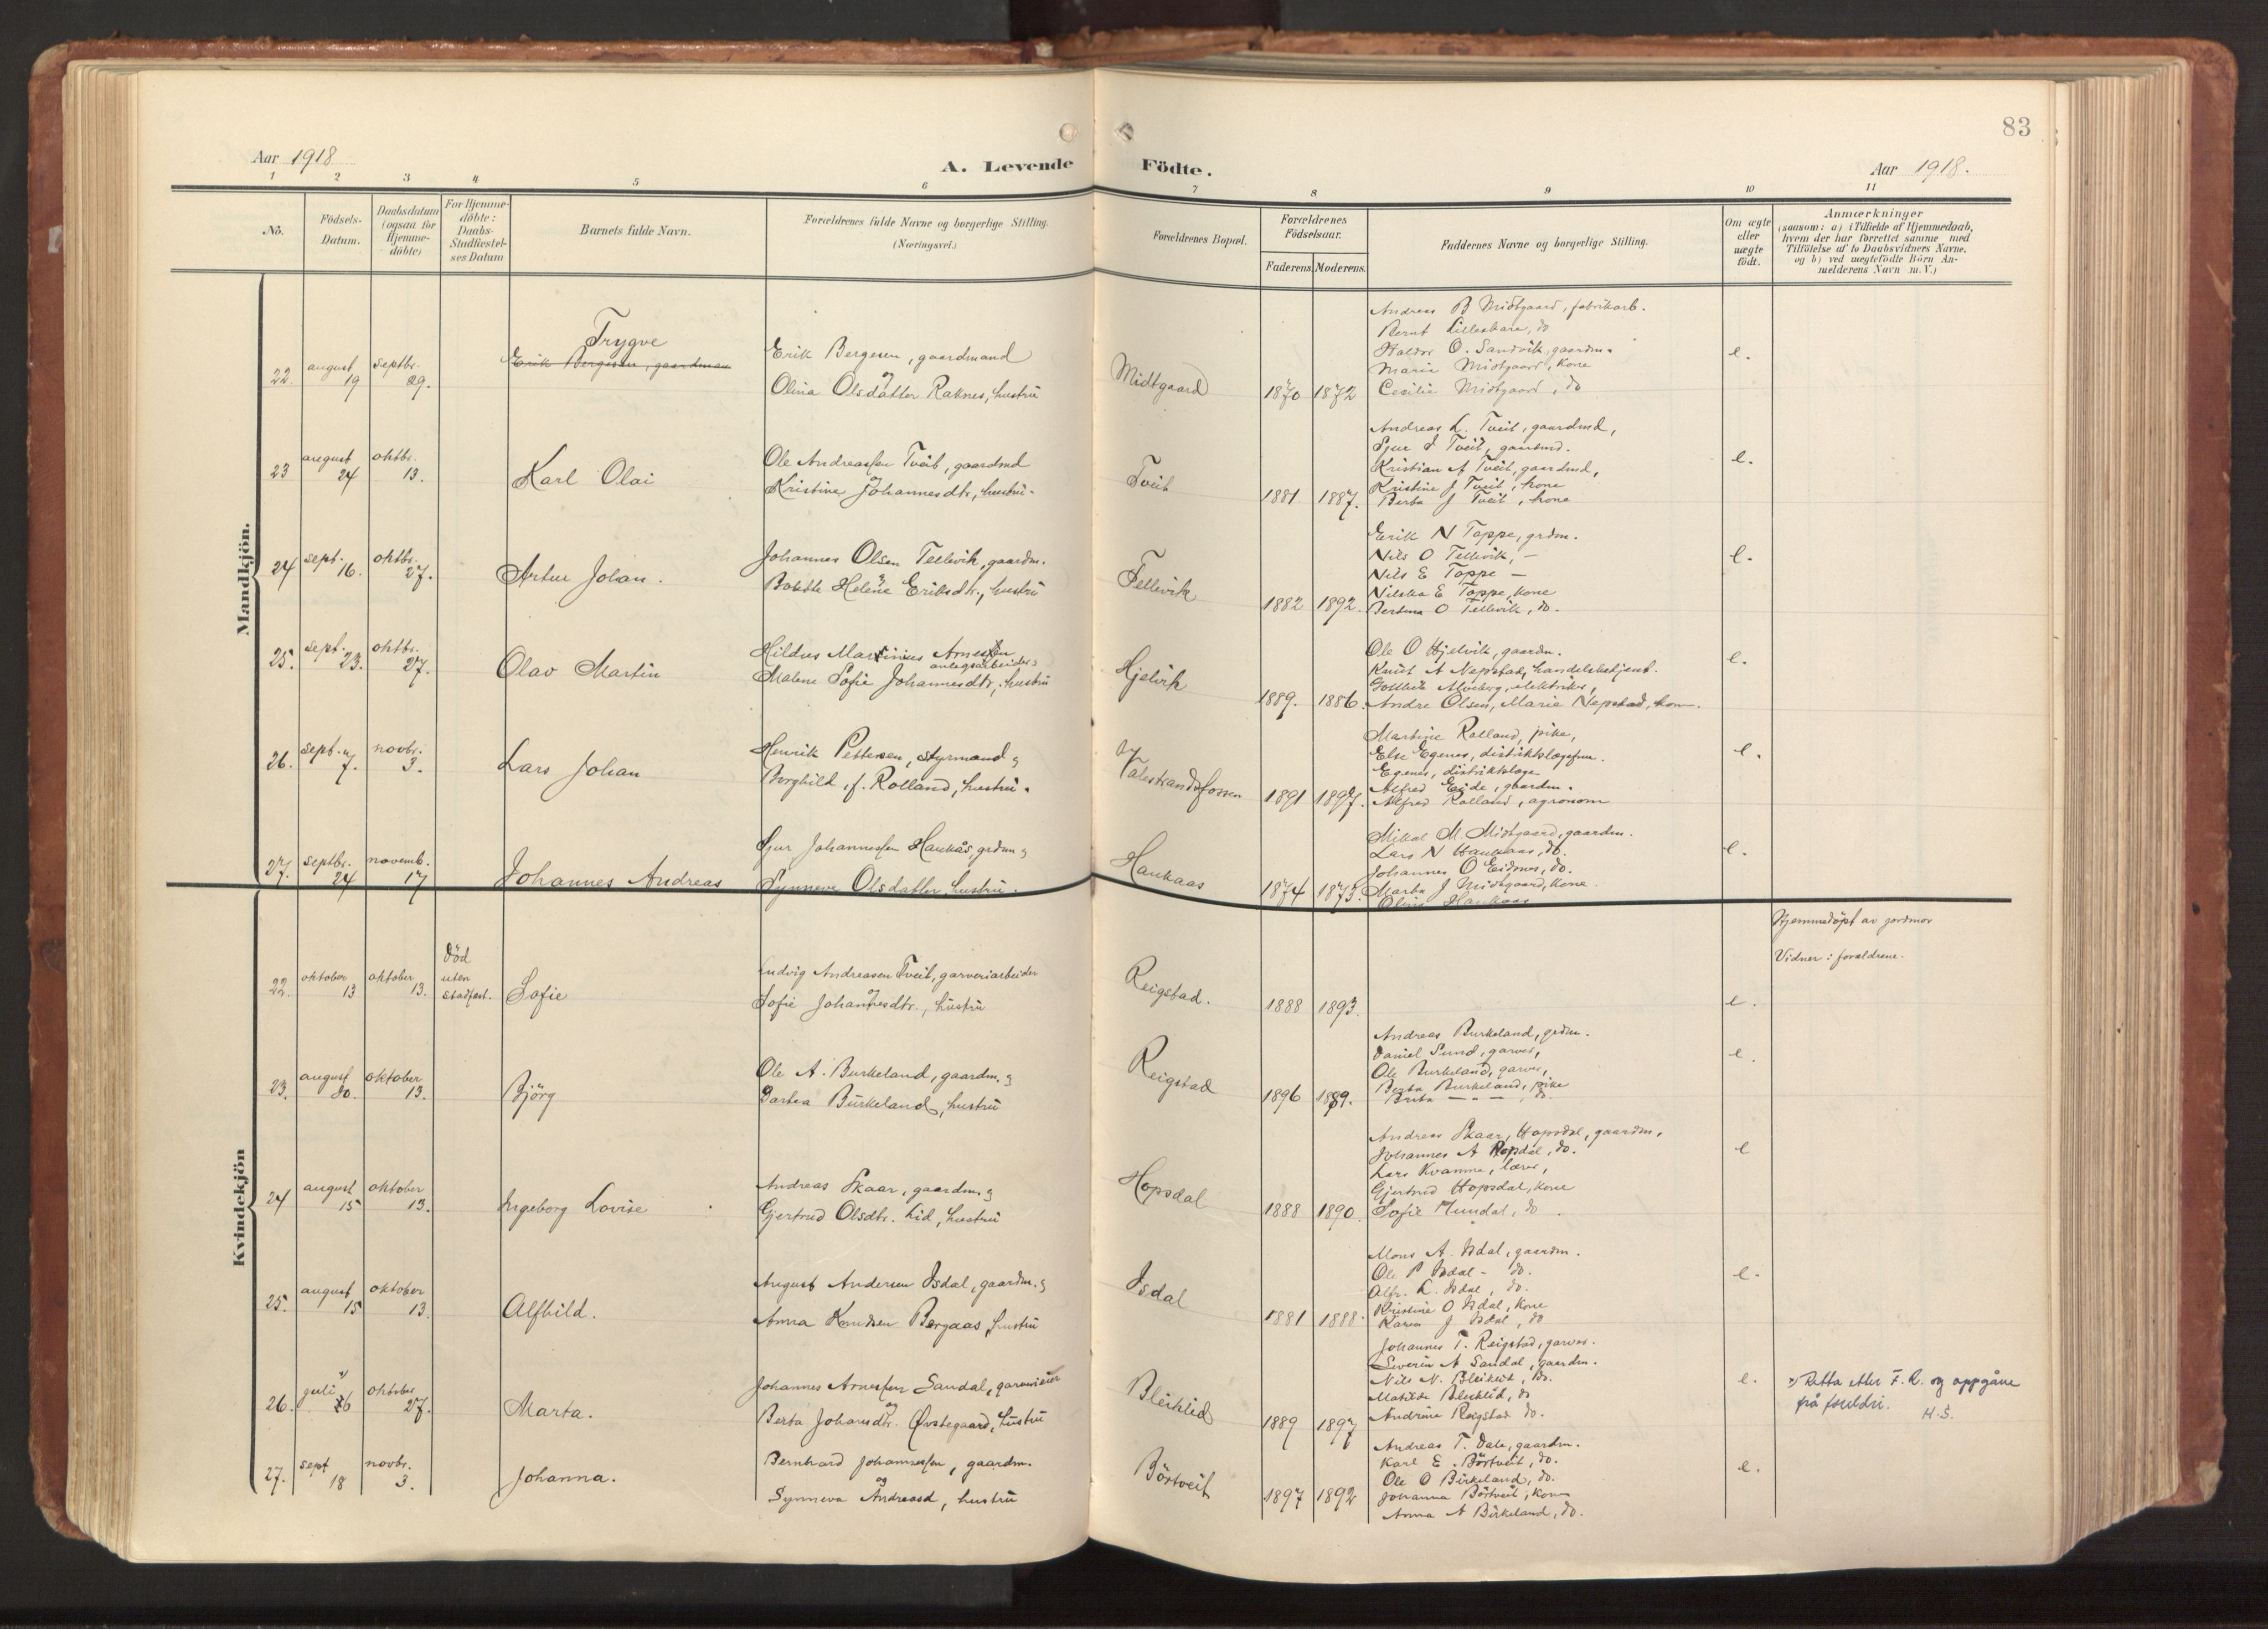 83
Aar 1918
A. Levende Födte.
Aar 1918.
1 2 3 4 5 6 7 8 9 10 11
No.
Födsels-
Datum.
Daabsdatum
(ogsaa for
Hjemme-
döbte)
For Hjemme-
döbte:
Daabs-
Stadfæstel-
ses Datum
Barnets fulde Navn.
Forældrenes fulde Navne og borgerlige Stilling.
(Næringsvei.)
Forældrenes Bopæl.
Forældrenes
Födselsaar.
Faderens. Moderens.
Faddernes Navne og borgerlige Stilling.
Om ægte
eller
uægte
födt.
Anmærkninger
(saasom: a) i Tilfælde af Hjemmedaab,
hvem der har forrettet samme med
Tilföielse af to Daabsvidners Navne.
og b) ved uægtefödte Börn An-
melderens Navn m. V.)
Mandkjön.
22. august 19 septbr. 29.
Trygve
Erik Bergesen, gaardman
Erik Bergesen, gaardmand
og
Olina Olsdatter Raknes, hustru
Midtgaard
1870 1872
Andreas B Midtgaard, fabrikarb.
Bernt Lilleskare, do
Haldor O. Sandvik, gaardm.
Marie Midtgaard, kone
Cecilie Midtgaard, do
e.
23 august 24 oktbr. 13.
Karl Olai
Ole Andreassen Tveit, gaardmd
og
Kristine Johannesdtr, hustru.
Tveit
1881 1887.
Andreas L. Tveit, gaardmd,
Sjur I Tveit, gaardmd.
Kristian A Tveit, gaardmd,
Kristine J Tveit, kone
Berta J Tveit, kone
e.
24 sept. 16. oktbr. 27.
Artur Johan.
Johannes Olsen Tellevik, gaardm.
Bolette Helene Eriksdtr., hustru
Tellevik
1882 1892.
Erik N Toppe, grdm.
Nils O Tellevik, —
Nils E Toppe —
Nilska E Toppe, kone
Bertina O Tellevik, do.
e.
25. sept. 23. oktbr. 27.
Olav Martin
Hildus Martinius Arnesen
anlegsarbeider
Malene Sofie Johannesdtr, hustru
Hjelvik
1889. 1886.
Ole O Hjelvik, gaardm.
Knut A Nepstad, handelsbetjent.
Gottlieb Alveberg, elektriker,
Andre Olsen, Marie Nepstad, kone.
e.
26. sept. 7. novbr. 3.
Lars Johan
Henrik Pettersen, styrmand og
Borghild, f. Rolland, hustru.
Valestrandsfossen
1891 1897.
Martine Rolland, pike,
Else Egenes, distriktslægefrue.
Egenes, distriktslæge
Alfred Eide, gaardm.
Alfred Rolland, agronom
e.
27. septbr. 24 novemb. 17
Johannes Andreas
Sjur Johannessen Haukås, grdm og
Synneve Olsdatter, hustru.
Haukaas
1874 1873.
Mikal M. Midtgaard, gaardm.
Lars N Haukaas, do.
Johannes O Eidnes, do.
Marta J Midtgaard, kone.
Olina Haukaas
e.
Kvindekjön
22. oktober 13 oktober 13.
Död
uten
stadfest.
Sofie
Ludvig Andreasen Tveit, garveriarbeider
og
Sofie Johannesdtr., hustru
Reigstad.
1888 1893.
e.
Hjemmedöpt av jordmor
Vidner: forældrene.
23. august 30. oktober 13.
Björg
Ole A. Burkeland, gaardm. og
Bartea Burkeland, hustru
Reigstad
1896 1889.
Andreas Burkeland, grdm.
Daniel Sund, garver,
Ole Burkeland, garver,
Berta Burkeland, pike
Brita — " — , do.
e.
24 august 15 oktober 13.
Ingeborg Lovise
Andreas Skaar, gaardm. og
Gjertrud Olsdtr. Lid, hustru
Hopsdal
1888 1890.
Andreas Skaar, Hopsdal, gaardm.
Johannes A Hopdal, do.
Lars Kvamme, lærer,
Gjertrud Hopsdal, kone
Sofie Mundal, do.
e
25. august 15 oktober 13
Alfhild.
August Andersen Isdal, gaardm. og
Anna Knudsen Bergaas, hustru
Isdal
1881 1888.
Mons A. Isdal, gaardm.
Ole P Isdal - do.
Alfr. L. Isdal, do.
Kristine O Isdal, kone
Karen J Isdal, do
e.
26. juli x) 26 oktober 27.
Marta.
Johannes Arnessen Sandal, garveri­eier
og
Berta Johansdtr. Övstegaard, hustru
Bleiklid
1889 1897
Johannes T. Reigstad, garver.
Severin A Sandal, gaardm.
Nils N. Bleiklid, do.
Matilde Bleiklid, do
Andrine Reigstad do.
e.
x) Retta etter F. R. og oppgåve
frå foreldri. H.S.
27. sept 18 novbr. 3.
Johanna.
Bernhard Johannessen, gaardm.
og
Synneva Andreasd, hustru
Börtveit
1897 1892
Andreas T. Dale, gaardm.
Karl E. Börtveit, do.
Ole O Birkeland, do.
Johanna Börtveit, kone
Anna A Birkeland, do.
e.